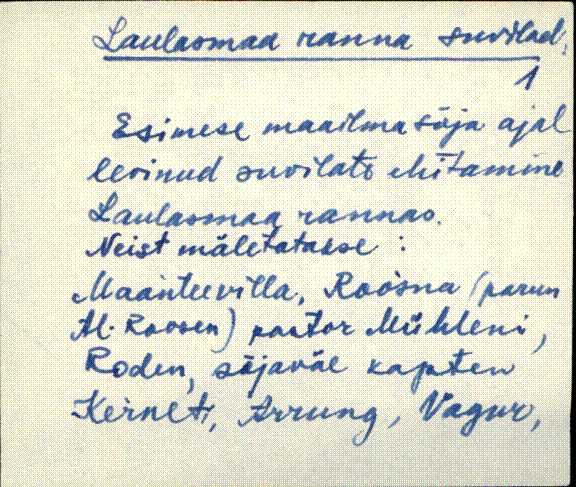 Laulasmaa ranna suvilad.
1
Esimese maailmasõja ajal
levinud suvilate ehitamine
Laulasmaa rannas.
Neist mäletatasse :
Maanteevilla, Roosna (parun
Al. Roosen) pastor Mühleni,
Roden, sõjaväe kapten
Kerneti, Arrung, Vagur,